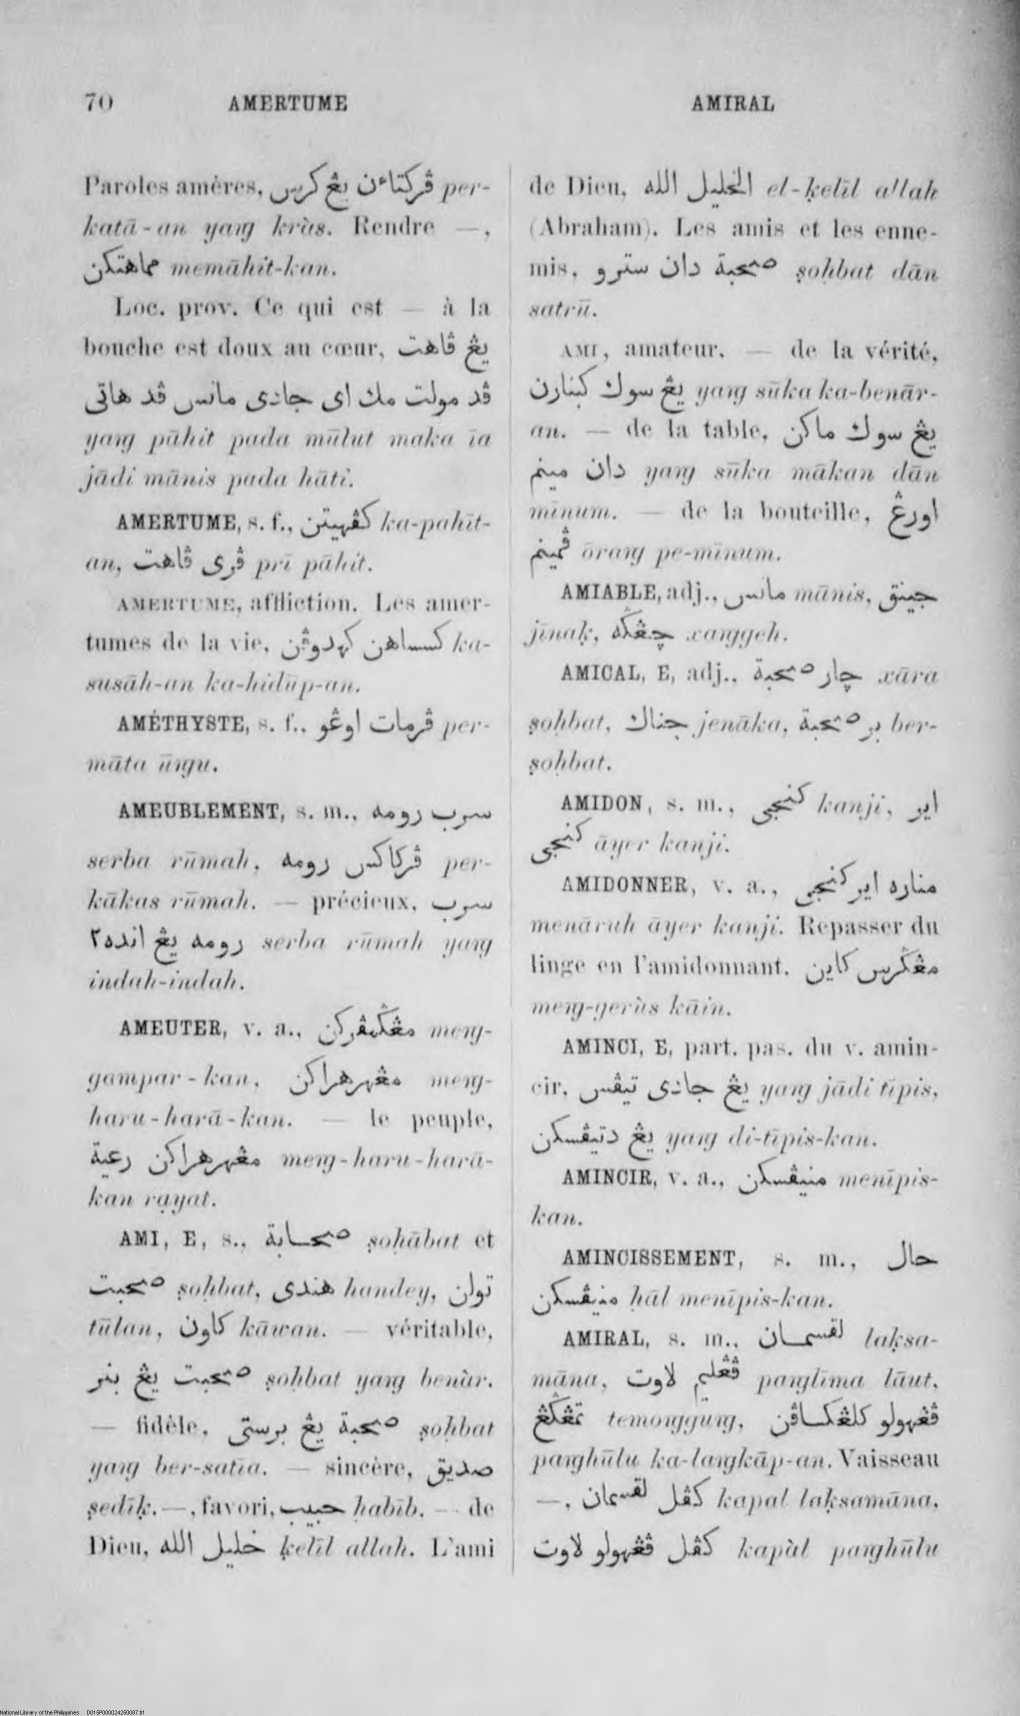 70 AMERTUME AMIRAL
Paroles amères, ڤركتاءن يڠ كرس per-
katā-an yaṅg kràs. Rendre —,
مماهتكن memāhit-kan.
Loc. prov. Ce qui est — à la
bouche est doux au cœur, يڠ ڤاهت
ڤد مولت مك اى جادى مانس ڤد هاتى
yaṅg pāhit pada mūlut maka īa
jādi mānis pada hāti.
AMERTUME, s. f., كڤهيتن ka-pahīt-
an, ڤرى ڤاهت prī pāhit.
AMERTUME, affliction. Les amer-
tumes de la vie, كسساهن كهدوڤن ka-
susāh-an ka-hidūp-an.
AMÉTHYSTE, s. f., ڤرمات اوڠو per-
māta ūṅgu.
AMEUBLEMENT, s. m., سرب رومه
serba rūmah, ڤركاكس رومه per-
kākas rūmah. — précieux, سرب
رومه يڠ انده٢ serba rūmah yaṅg
indah-indah.
AMEUTER, v. a., مڠݢمڤركن meṅg-
gampar-kan, مڠهرهراكن meṅg-
haru-harā-kan. — le peuple,
مڠهرهراكن رعية meṅg-haru-harā-
kan rayat.
AMI, E, s., صحابة ṣoḥābat et
صحبت ṣoḥbat, هندى handey, تولن
tūlan, كاون kāwan. — véritable,
صحبت يڠ بنر ṣoḥbat yaṅg benàr.
— fidèle, صحبة يڠ برستى ṣoḥbat
yaṅg ber-satīa. — sincère, صديق
ṣedīḳ. —, favori, حبيب ḥabīb. — de
Dieu, خليل الله ḳelīl allah. L'ami
de Dieu, الخليل الله el-ḳelīl allah
(Abraham). Les amis et les enne-
mis, صحبة دان سترو ṣoḥbat dān
satrū.
AMI, amateur. — de la vérité,
يڠ سوك كبنارن yaṅg sūka ka-benār-
an. — de la table, يڠ سوك ماكن
دان مينم yaṅg sūka mākan dān
mīnum. — de la bouteille, اورڠ
ڤمينم ōraṅg pe-mīnum.
AMIABLE, adj., مانس mānis, جينق
jīnaḳ, چڠݢه xaṅggeh.
AMICAL, E, adj., چار صحبة xāra
ṣoḥbat, جناك jenāka, بر صحبة ber-
ṣoḥbat.
AMIDON, s. m., كنجى kanji, اير
كنجى āyer kanji.
AMIDONNER, v. a., مناره اير كنجى
menāruh āyer kanji. Repasser du
linge en l'amidonnant, مڠݢرس كاين
meṅg-gerùs kāin.
AMINCI, E, part. pas. du v. amin-
cir, يڠ جادى تيڤس yaṅg jādi tīpis,
يڠ دتيڤسكن yaṅg di-tīpis-kan.
AMINCIR, v. a., منيڤسكن menīpis-
kan.
AMINCISSEMENT, s. m., حال
منيڤسكن ḥāl menīpis-kan.
AMIRAL, s. m., لقسمان laḳsa-
māna, ڤڠليم لاوت paṅglīma lāut,
تمڠݢڠ temoṅgguṅg, ڤڠهولو كلڠكاڤن
paṅghūlu ka-laṅgkāp-an. Vaisseau
—, كڤل لقسمان kapal laḳsamāna,
كڤل ڤڠهولو لاوت kapàl paṅghūlu
National Library of the Philippines